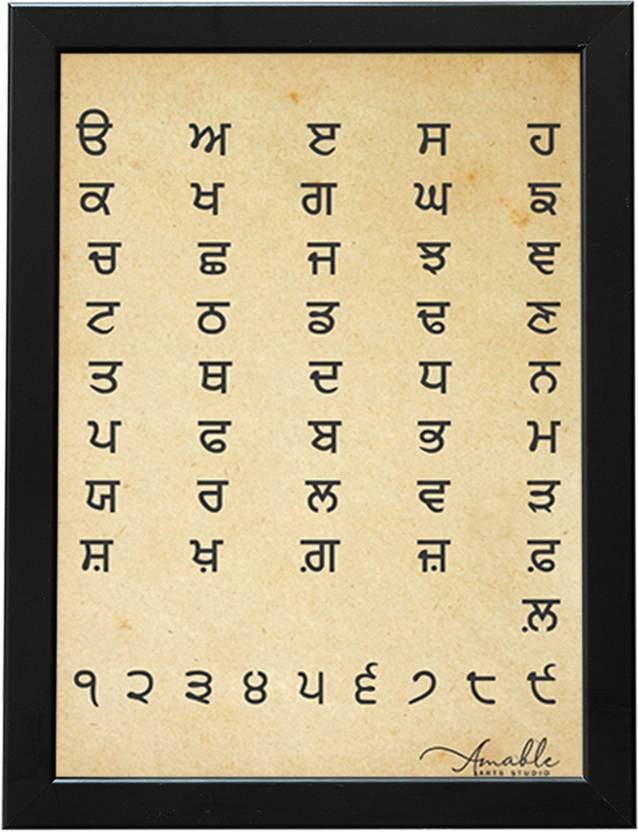 ੳ ਅ ੲ ਸ ਹ
ਕ ਖ ਗ ਘ ਙ
ਚ ਛ ਜ ਝ ਞ
ਟ ਠ ਡ ਢ ਣ
ਤ ਥ ਦ ਧ ਨ
ਪ ਫ ਬ ਭ ਮ
ਯ ਰ ਲ ਵ ੜ
ਸ਼ ਖ਼ ਗ਼ ਜ਼ ਫ਼
ਲ਼
੧ ੨ ੩ ੪ ੫ ੬ ੭ ੮ ੯
Amable
ARTS STUDIO